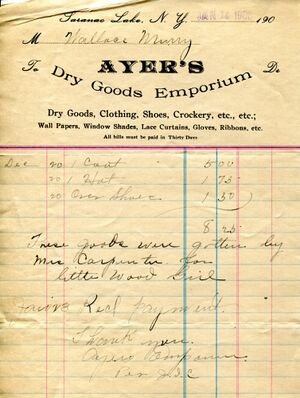 Saranac Lake, N. Y. JAN 14 190
M Wallace Murry
To AYER'S Dr
Dry Goods Emporium
Dry Goods, Clothing, Shoes, Crockery, etc., etc.;
Wall Papers, Window Shades, Lace Curtains, Gloves, Ribbons, etc.
All bills must be paid in Thirty Days
Dec 20 1 Coat 5 00
20 1 Hat 1 75
20 Over Shoes 1 50
8 25
These goods were gotten by
Mrs Carpenter for
little Wood Girl
Recd payment
Thank you.
Ayers Emporium
Per